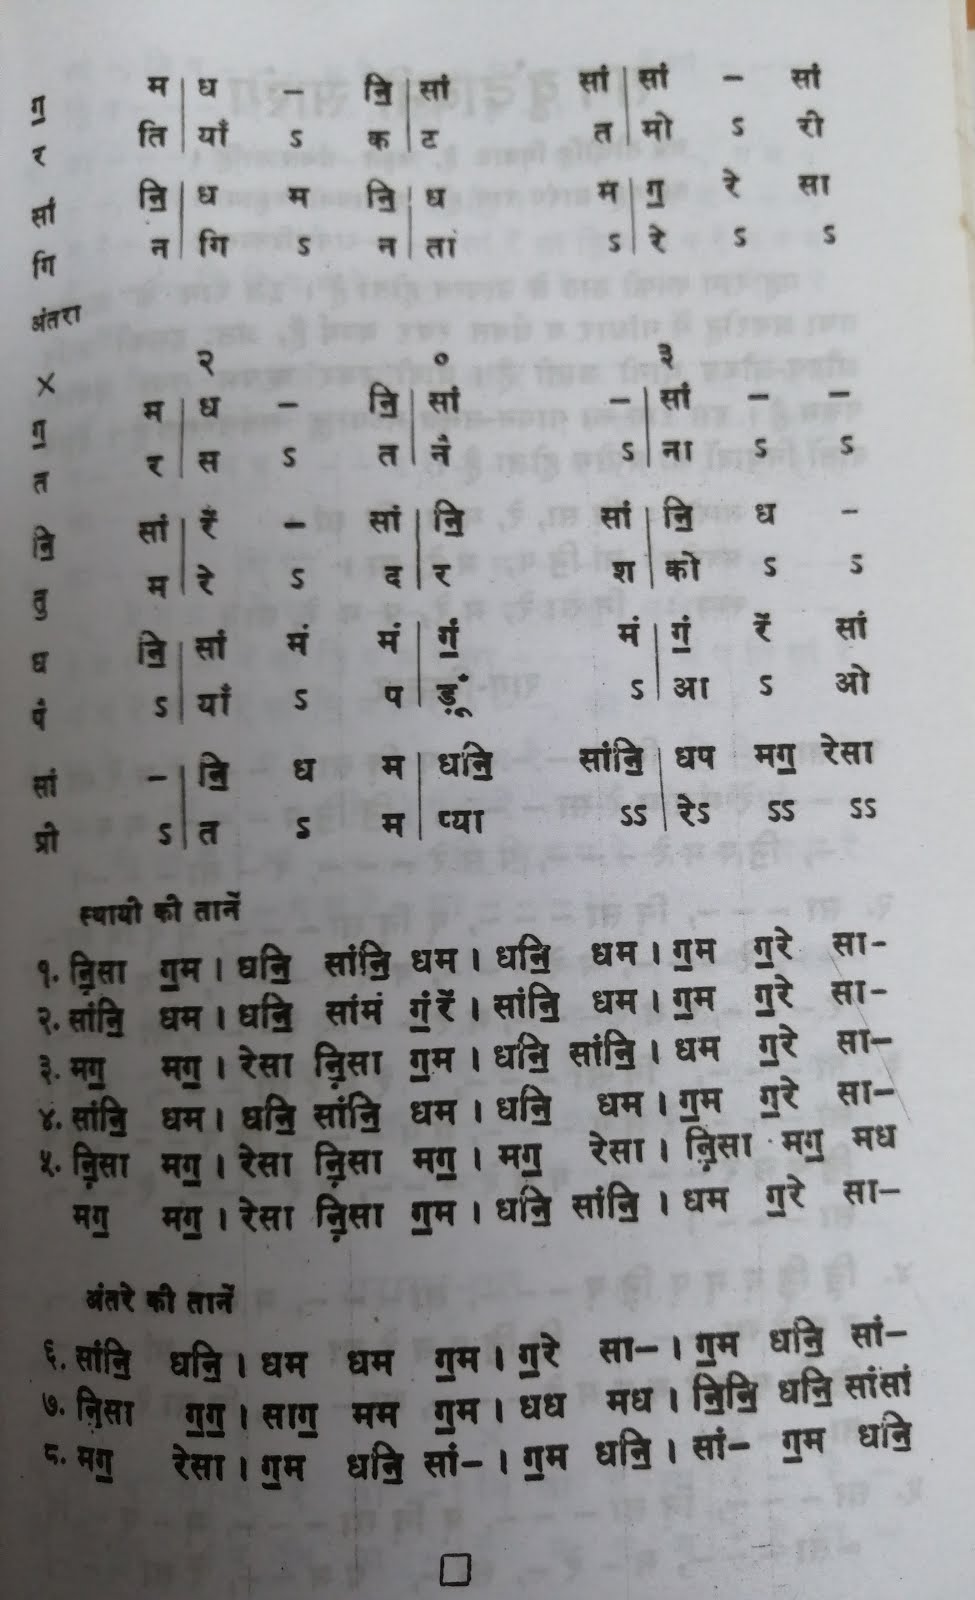 ग॒ म | ध – नि॒ | सां सां | सां – सां
र ति | याँ ऽ क | ट त | मो ऽ री
सां नि॒ | ध म नि॒ | ध म | ग॒ रे सा
गि न | गि ऽ न | ता ऽ | रे ऽ ऽ
अंतरा
× २ ० ३
ग॒ म | ध – नि॒ | सां – | सां – –
त र | स ऽ त | नै ऽ | ना ऽ ऽ
नि॒ सां | रें – सां | नि॒ सां | नि॒ ध –
तु म | रे ऽ द | र श | को ऽ ऽ
ध नि॒ | सां मं मं | गं॒ मं | गं॒ रें सां
पं ऽ | याँ ऽ प | ड़ूँ ऽ | आ ऽ ओ
सां – | नि॒ ध म | धनि॒ सांनि॒ | धप मग॒ रेसा
प्री ऽ | त ऽ म | प्या ऽऽ | रेऽ ऽऽ ऽऽ
स्थायी की तानें
१. नि़॒सा ग॒म । धनि॒ सांनि॒ धम । धनि॒ धम । ग॒म ग॒रे सा–
२. सांनि॒ धम । धनि॒ सांमं गं॒रें । सांनि॒ धम । ग॒म ग॒रे सा–
३. मग॒ मग॒ । रेसा नि़॒सा ग॒म । धनि॒ सांनि॒ । धम ग॒रे सा–
४. सांनि॒ धम । धनि॒ सांनि॒ धम । धनि॒ धम । ग॒म ग॒रे सा–
५. नि़॒सा मग॒ । रेसा नि़॒सा मग॒ । मग॒ रेसा । नि़॒सा मग॒ मध
मग॒ मग॒ । रेसा नि़॒सा ग॒म । धनि॒ सांनि॒ । धम ग॒रे सा–
अंतरे की तानें
६. सांनि॒ धनि॒ । धम धम ग॒म । ग॒रे सा– । ग॒म धनि॒ सां–
७. नि़॒सा ग॒ग॒ । साग॒ मम ग॒म । धध मध । नि॒नि॒ धनि॒ सांसां
८. मग॒ रेसा । ग॒म धनि॒ सां– । ग॒म धनि॒ । सां– ग॒म धनि॒